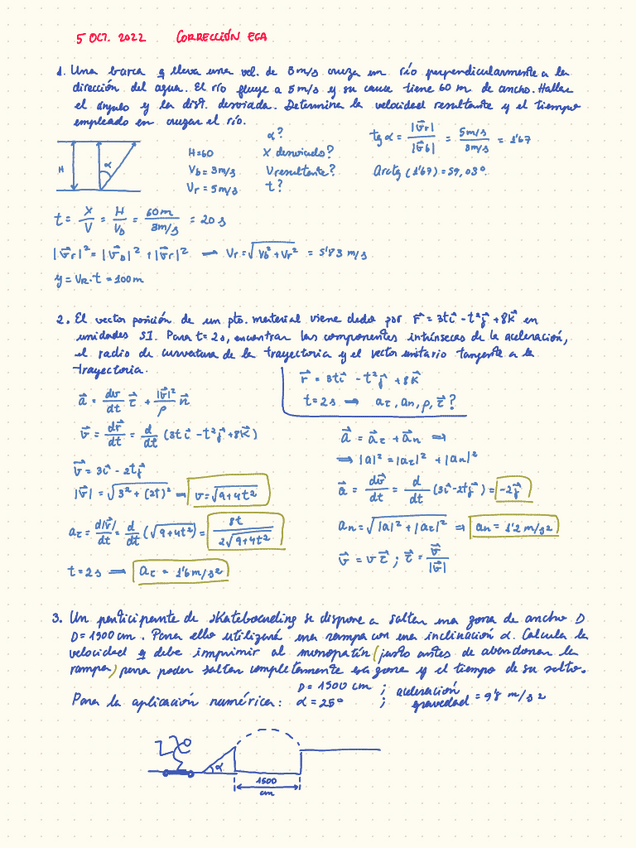 5 OCT. 2022 CORRECCIÓN ECA
1. Una barca q lleva una vel. de 3m/s cruza un río perpendicularmente a la
dirección del agua. El río fluye a 5m/s y su cauce tiene 60 m de ancho. Hallar
el ángulo y la dist. desviada. Determina la velocidad resultante y el tiempo
empleado en cruzar el río.
H
α
H=60
Vb = 3m/s
Vr = 5m/s
α?
X desviado?
Vresultante?
t?
tg α = |v⃗r| / |v⃗b| = 5m/s / 3m/s = 1'67
Arctg (1'67) = 59,03º
t = X/V = H/Vb = 60m / 3m/s = 20 s
|v⃗r|² = |v⃗b|² + |v⃗r|² → Vr = √(Vb² + Vr²) = 5'83 m/s
y = VR · t = 100m
2. El vector posición de un pto. material viene dado por r⃗ = 3ti⃗ - t²j⃗ + 8k⃗ en
unidades SI. Para t = 2s, encontrar las componentes intrínsecas de la aceleración,
el radio de curvatura de la trayectoria y el vector unitario tangente a la
trayectoria.
r⃗ = 3ti⃗ - t²j⃗ + 8k⃗
t = 2s → aτ, an, ρ, τ⃗?
a⃗ = dv/dt τ⃗ + |v⃗|²/ρ n⃗
v⃗ = dr⃗/dt = d/dt (3ti⃗ - t²j⃗ + 8k⃗)
v⃗ = 3i⃗ - 2tj⃗
|v⃗| = √(3² + (2t)²) → v = √(9+4t²)
aτ = d|v⃗|/dt = d/dt (√(9+4t²)) = 8t / 2√(9+4t²)
t = 2s → aτ = 1'6 m/s²
a⃗ = a⃗τ + a⃗n ⇒
⇒ |a|² = |aτ|² + |an|²
a⃗ = dv⃗/dt = d/dt (3i⃗ - 2tj⃗) = -2j⃗
an = √(|a|² + |aτ|²) ⇒ an = 1'2 m/s²
v⃗ = v τ⃗ ; τ⃗ = v⃗/|v⃗|
3. Un participante de skateboarding se dispone a saltar una zona de ancho D
D = 1500 cm. Para ello utilizará una rampa con una inclinación α. Calcula la
velocidad q debe imprimir al monopatín (justo antes de abandonar la
rampa) para poder saltar completamente esa zona y el tiempo de su salto.
Para la aplicación numérica: D = 1500 cm ; aceleración
α = 25º ; gravedad = 9'8 m/s²
α
1500
cm